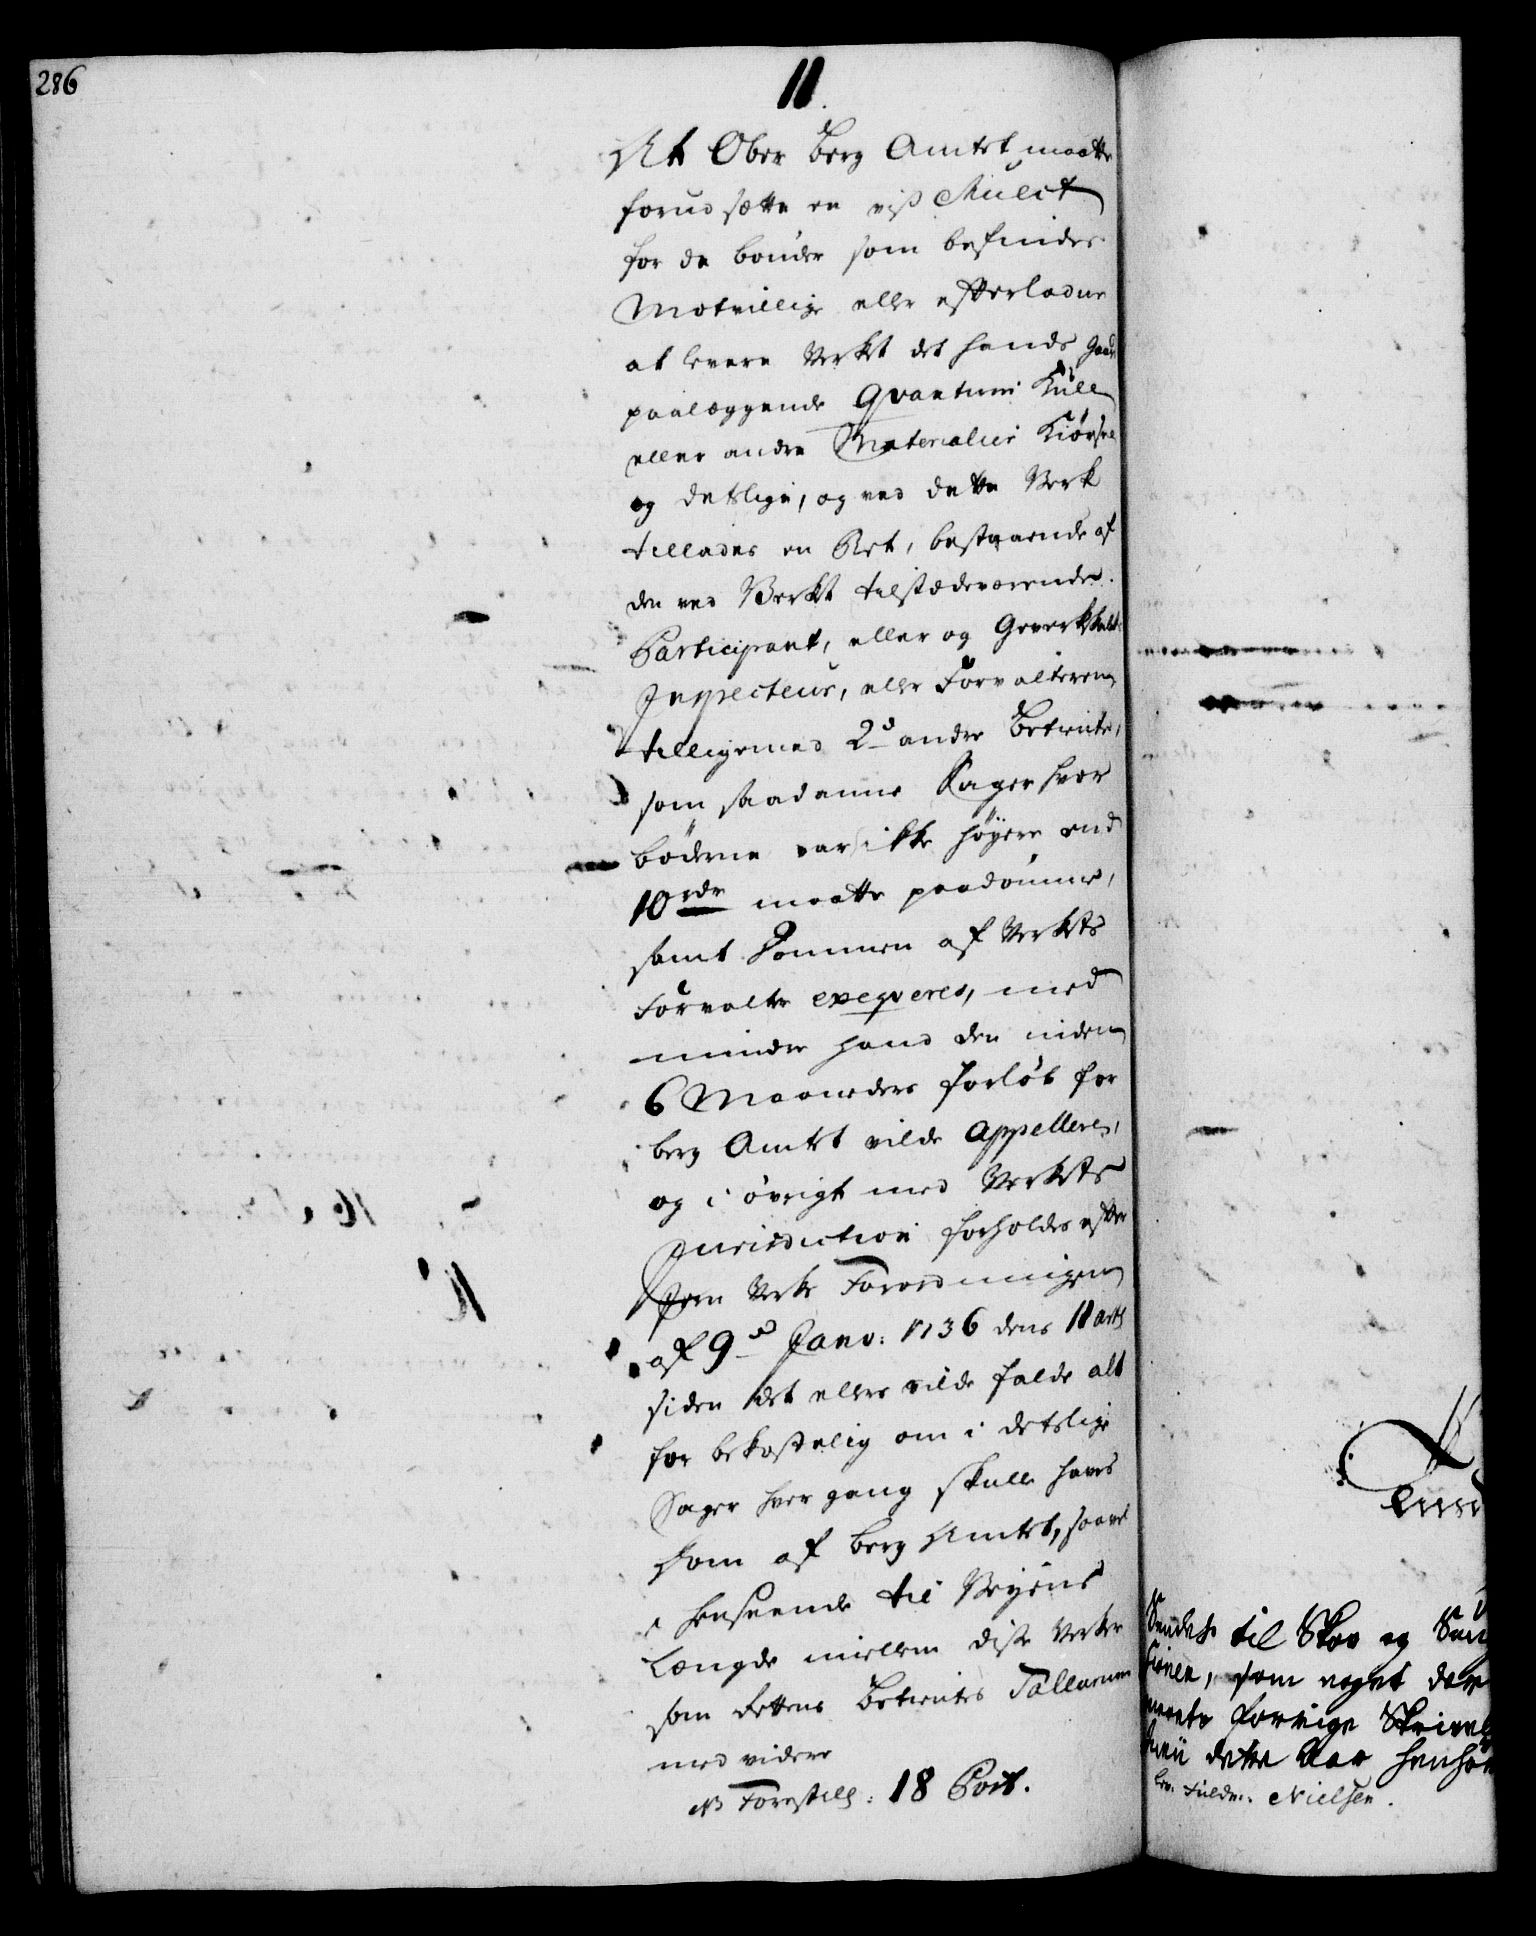 286
11.
At Ober Berg Amtet maatte
forud sætte en viß Mulct
for de bønder som befindes
Motvillige eller efterladne
at levere Verket det hands Gaard
paalæggende Qvantum Kull
eller andre Materialier Kiørsel
og detslige, og ved dette Verk
tillades en Ret, bestaaende af
den ved Verket tilstædeværende
Participant, eller og Gewerkskabets
Inspecteur, eller Forvalteren
tilligemed 2de andre Betiente,
som saadanne Sager hvor
bøderne var ikke høyere end
10 rdr maatte paadømme,
samt Dommen af Verkets
Forvalter exeqveres, med
mindre hand den inden
6 Maaneders Forløb for
berg Amtet vilde Appellere,
og i øvrigt med Verkets
Jurisdiction forholdes efter
Jern Verks Forordningen
af 9de Janv: 1736 dens 11 art
siden det ellers vilde falde alt
for bekostelig om i detslige
Sager hver gang skulle haves
Dom af berg Amtet, saavel
i henseende til Veyens
Længde mellem disse Verker
som Rettens Betientes
med videre
NB Forestill: 18 Post.
Sendes til Skov og
som noget
forrige
dette Aar
Nielsen.